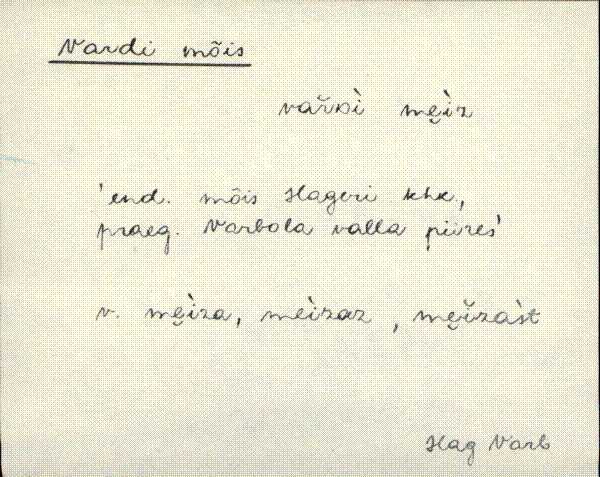 Vardi mõis
vařᴅì me̮ìz
'end. mõis Hageri khk.,
praeg. Varbola valla piires'
v. me̮ìza, meìzaz, me̮ǐzàst
Hag Varb